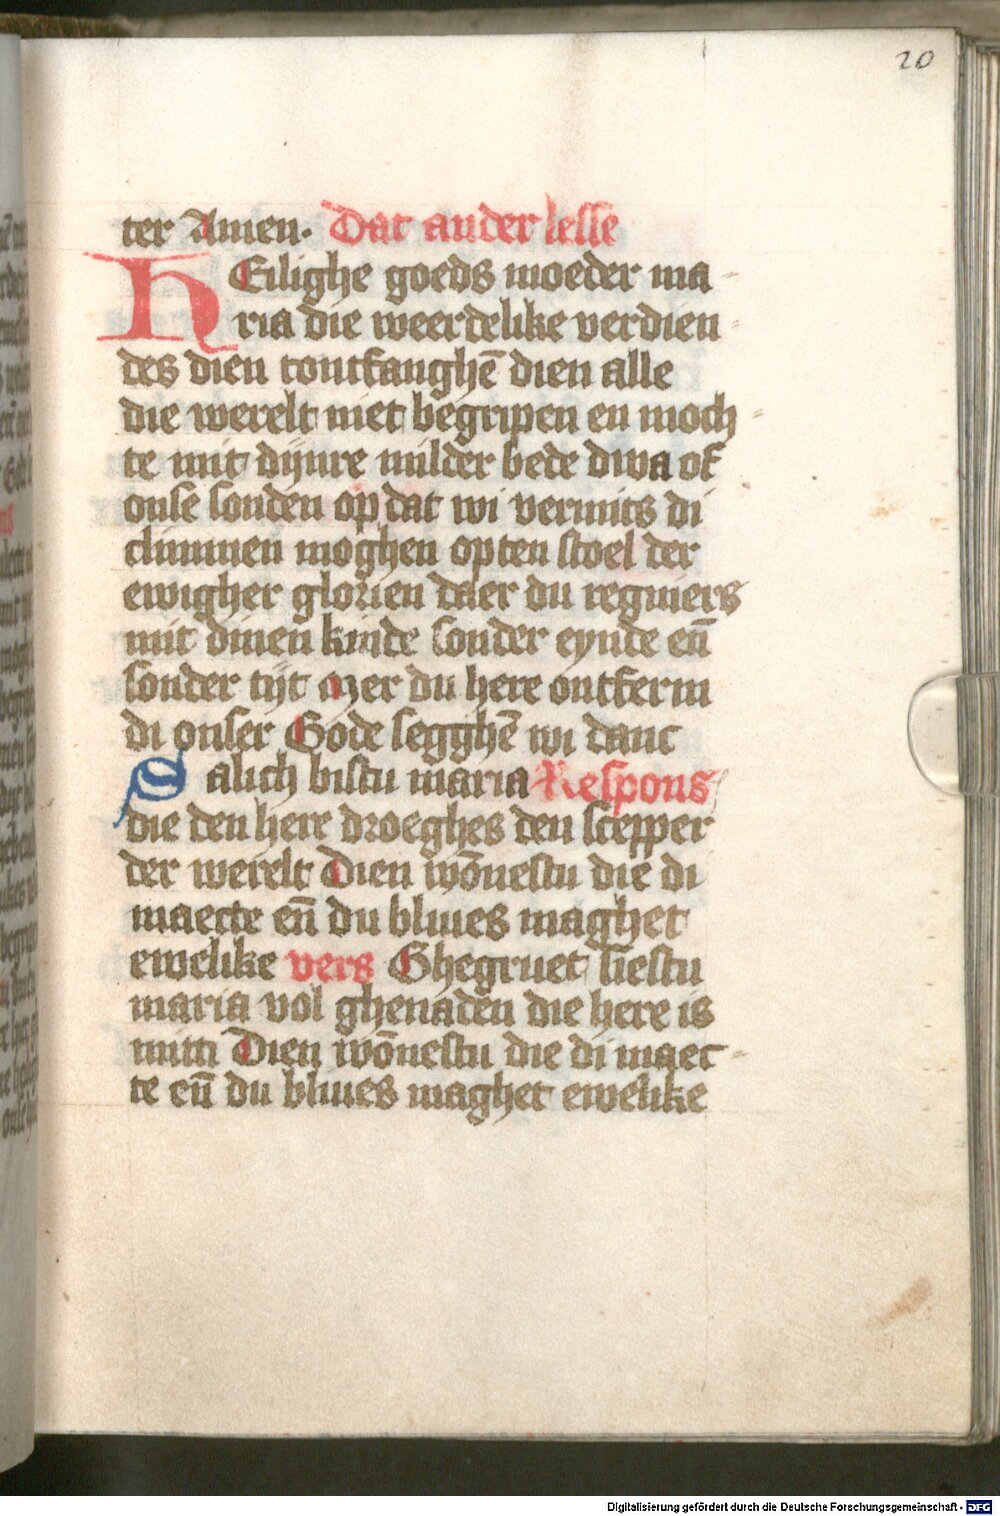 20
ter Amen. Dat ander lesse
HEilighe goeds moeder ma=
ria die weerdelike verdien=
des dien tontfanghē dien alle
die werelt niet begripen en moch=
te mit dijnre milder bede dwa of
onse sonden op dat wi vermits di
climmen moghen opten stoel der
ewigher glorien daer du regniers
mit dinen kinde sonder eynde eñ
sonder tijt Mer du here ontferm
di onser Gode segghē wi danc
Salich bistu maria Respons
die den here droeghes den scepper
der werelt Dien wōnestu die di
maecte eñ du bliues maghet
ewelike vers Ghegruet siestu
maria vol ghenaden die here is
mitti Dien wōnestu die di maec=
te eñ du bliues maghet ewelike
Digitalisierung gefördert durch die Deutsche Forschungsgemeinschaft - DFG